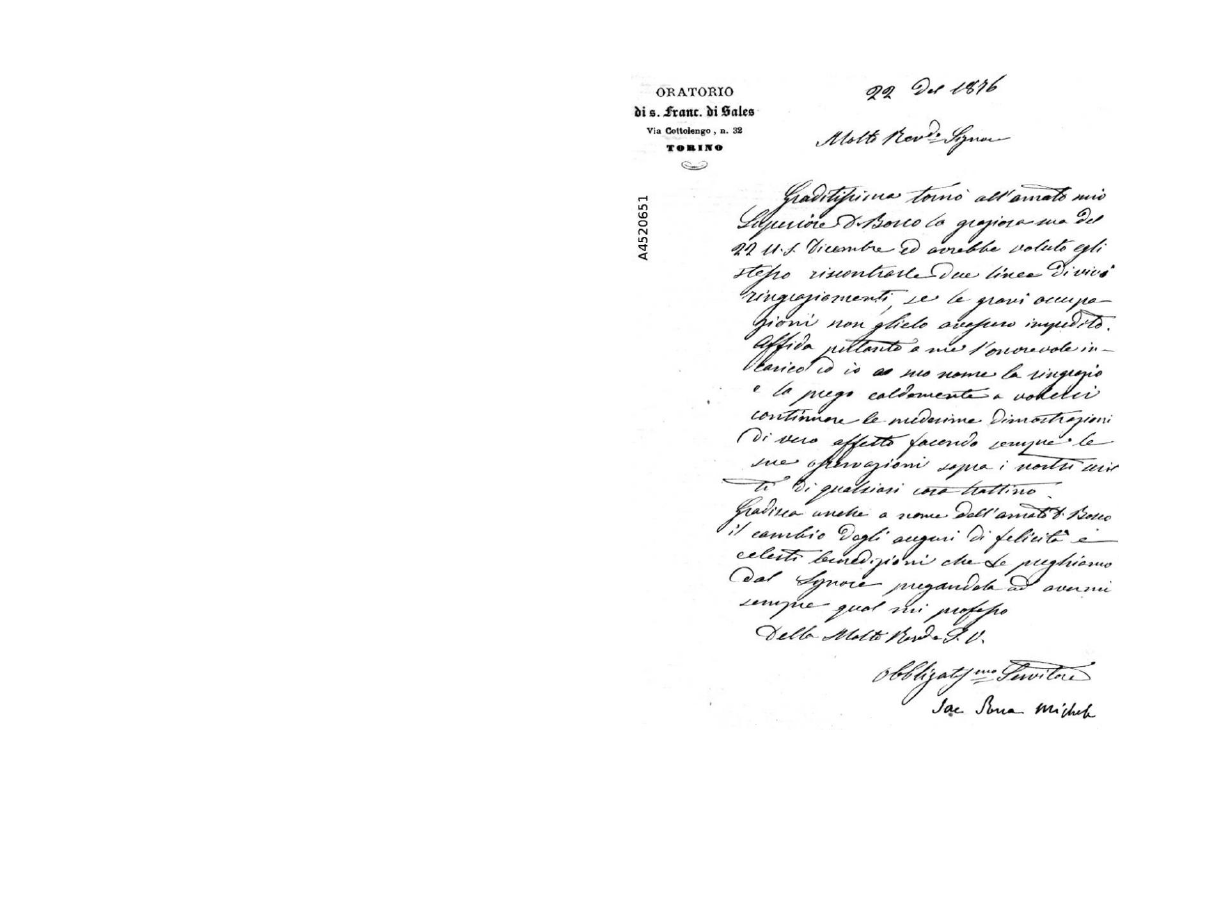 ORATORIO
di s. Franc. di Sales
Via Cottolengo, n. 32
TORINO
A4520651
22 Del 1876
Molto Revdo Signore
Graditissima tornò all'amato mio
Superiore D. Bosco la graziosa sua del
22 u.s. Dicembre ed avrebbe voluto egli
stesso riscontrarle due linee di vivi
ringraziamenti, se le gravi occupa-
zioni non glielo avessero impedito.
Affida pertanto a me l'onorevole in-
carico ed io a suo nome la ringrazio
e la prego caldamente a volerci
continuare le medesime dimostrazioni
di vero affetto facendo sempre le
sue osservazioni sopra i nostri scrit
ti di qualsiasi cosa trattino.
Gradisca anche a nome dell'amato D. Bosco
il cambio degli auguri di felicità e
celesti benedizioni che Le preghiamo
dal Signore pregandola ad avermi
sempre qual mi professo
Della Molto Revda S. V.
Obbligatssmo Servitore
Sac Bona Michele